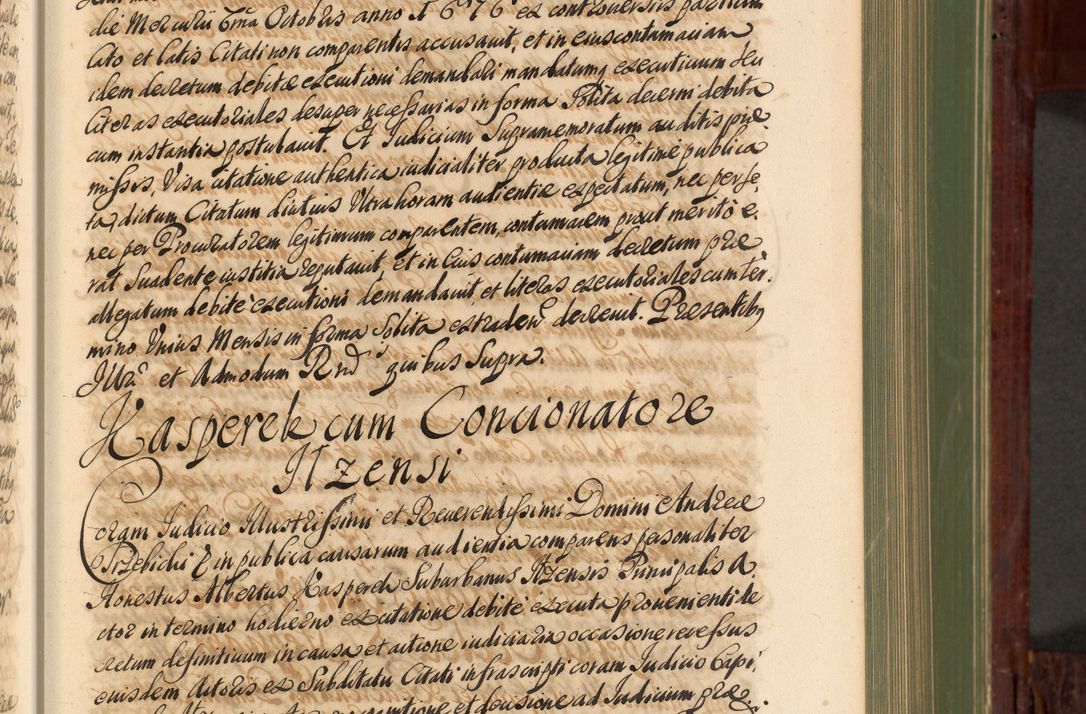 die Mercurii 6ma Octobris anno 1676 ex controversiis partium
lato et latis Citati non comparentis accusavit, et in eius contumaciam
idem decretum debitæ executioni demandari mandatumq executivum seu
literas executoriales desuper necessarias in forma solita decerni debita
cum instantia postulavit. Et Iudicium supramemoratum auditis præ
missis, Visa citatione authentica iudicialiter producta legitime publica
ta, dictum Citatum diutius Ultra horam audientiæ expectatum, nec per se,
nec per Procuratorem legitimum comparentem, contumacem prout merito e,
rat suadente iustitia reputavit, et in Eius contumaciam decretum præ
allegatum debitè executioni demandavit et literas executoriales cum ter,
mino Unius Mensis in forma solita extraden decrevit. Presentibq
Illri et Admodum Rndi quibus Supra.
Kasperek cum Concionatore
Ilzensi
Coram Iudicio Illustrissimi et Reverendissimi Domini Andreæ
Trzebicki E in publica causarum audientia comparens personaliter
Honestus Albertus Kasperek Suburbanus Ilzensis Principalis A,
ctor in termino hodierno ex citatione debitè executa provenienti de
cretum definitivum in causa et actione iudiciaria occasione revessus
eiusdem Actoris ex Subditatu Citati infrascripti coram Iudicio Capi,
et decisione ad Iudicium præ